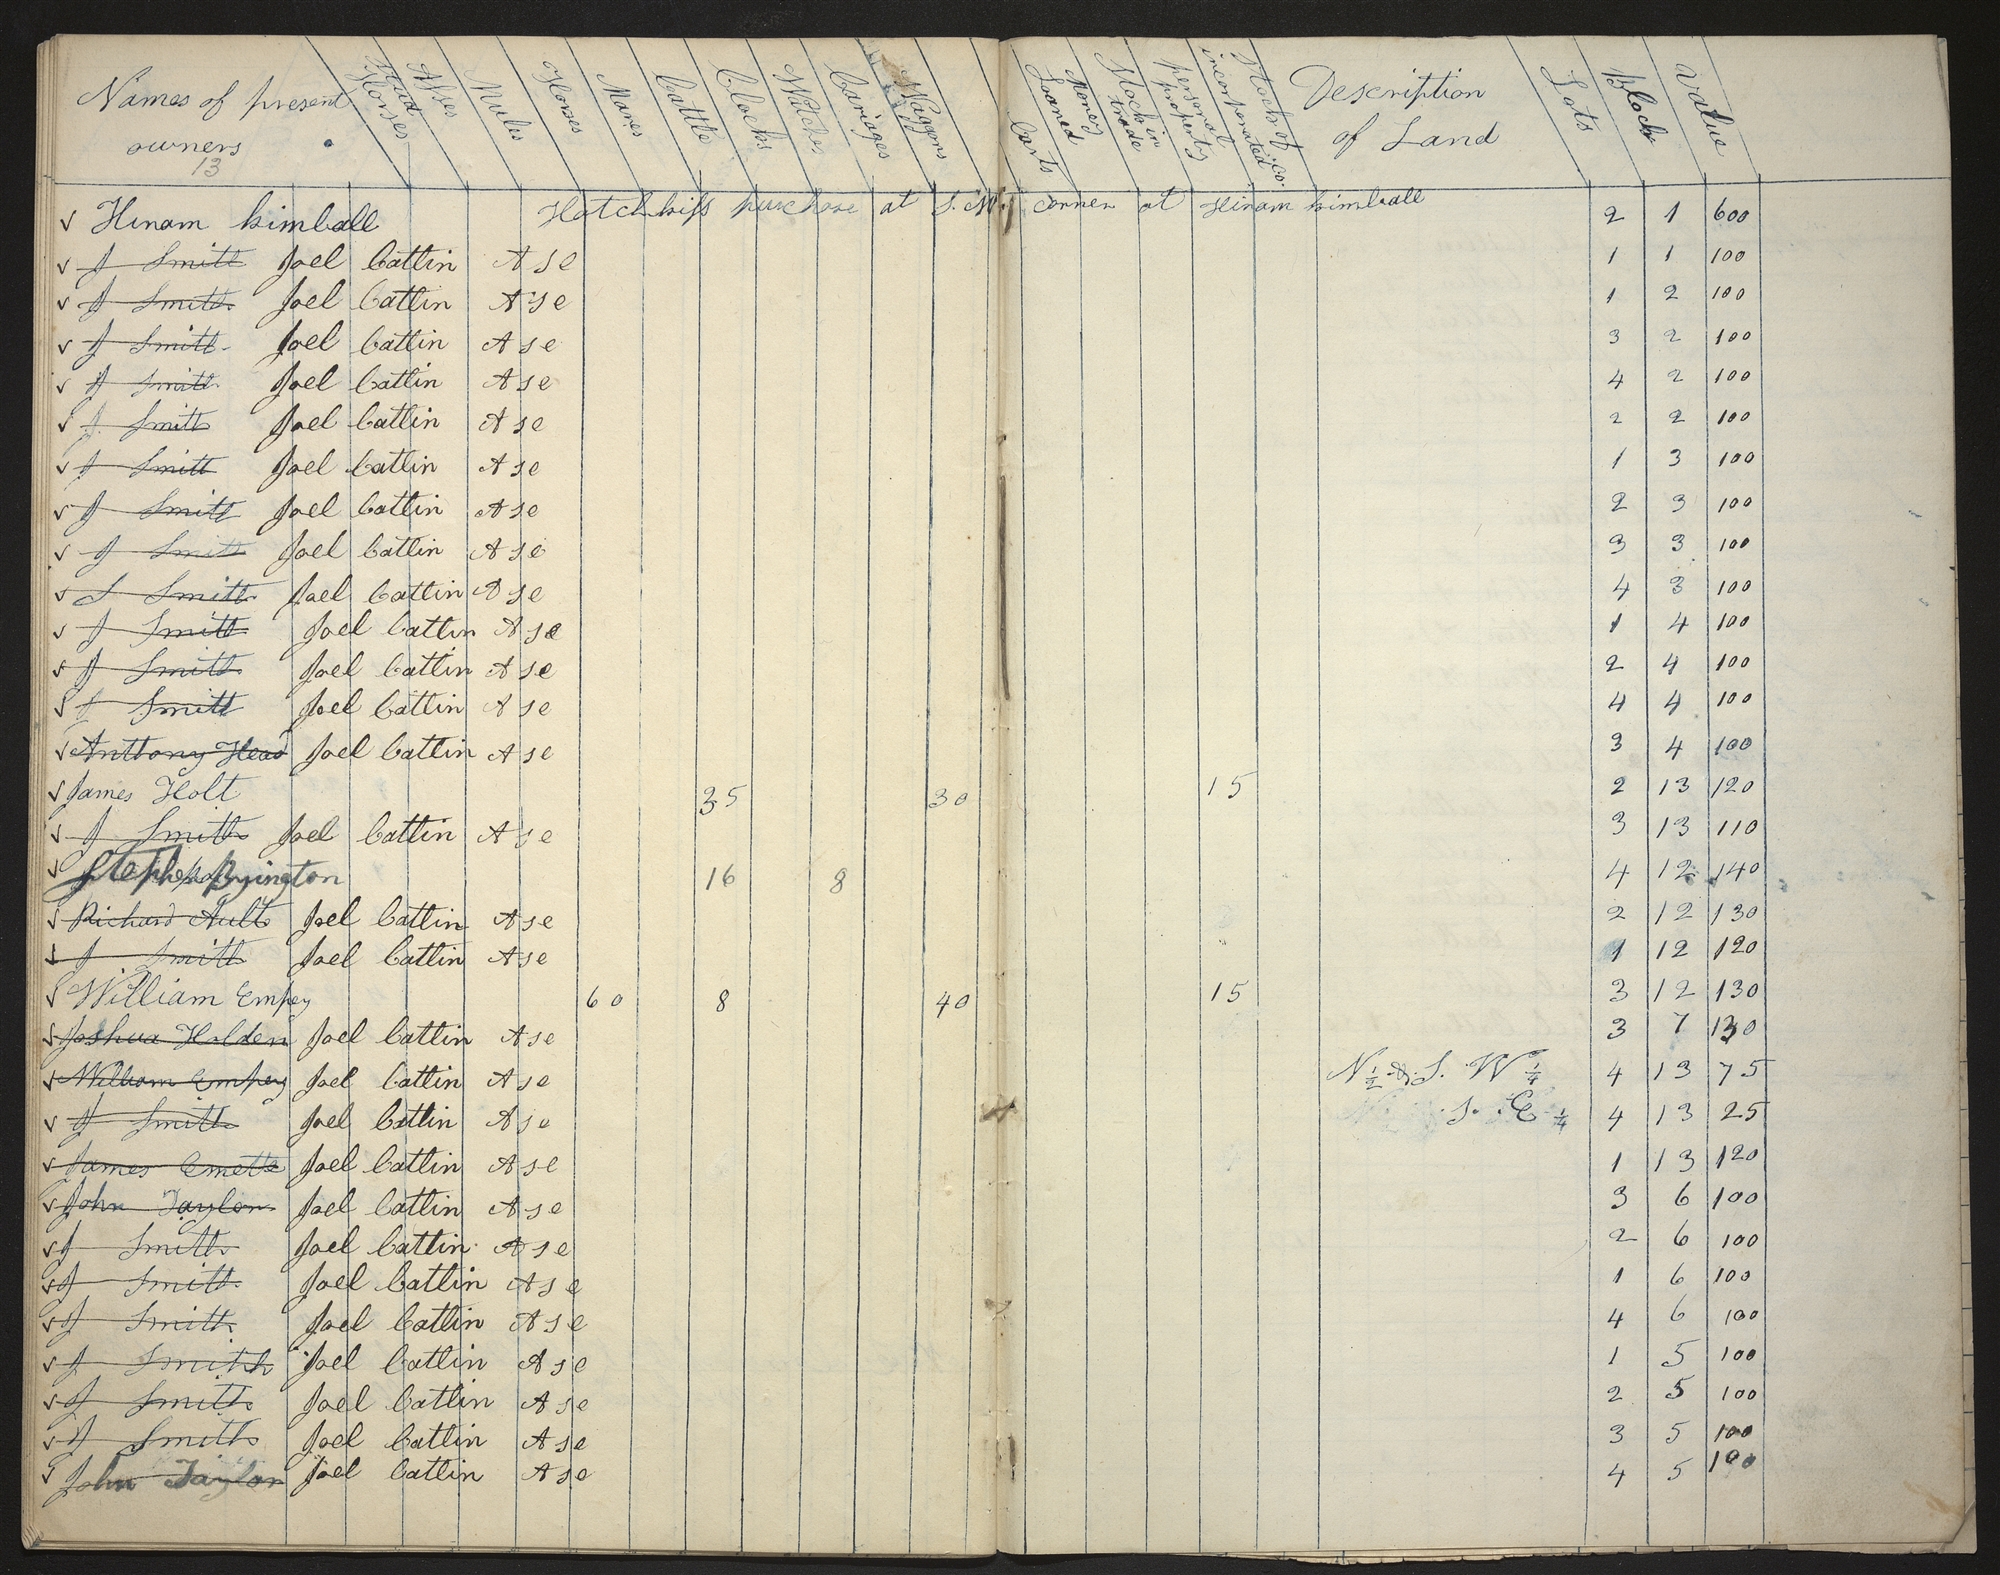 Names of present owners 13 Stud Horses Asses Mules Horses Mares Cattle Clocks Watches Cariages Waggons Carts Money Loaned Stock in trade personal property Stock of incorporated co. Description of Land Lots Block value
✓ Hiram kimball Hotchkiss purchase at S.W. corner at Hiram kimball 2 1 600
✓ J Smith Joel Catlin Ase 1 1 100
✓ J Smith Joel Catlin Ase 1 2 100
✓ J Smith Joel Catlin Ase 3 2 100
✓ J Smith Joel Catlin Ase 4 2 100
✓ J Smith Joel Catlin Ase 2 2 100
✓ J Smith Joel Catlin Ase 1 3 100
✓ J Smith Joel Catlin Ase 2 3 100
✓ J Smith Joel Catlin Ase 3 3 100
✓ J Smith Joel Catlin Ase 4 3 100
✓ J Smith Joel Catlin Ase 1 4 100
✓ J Smith Joel Catlin Ase 2 4 100
✓ J Smith Joel Catlin Ase 4 4 100
✓ Anthony Head Joel Catlin Ase 3 4 100
✓ James Holt 35 30 15 2 13 120
✓ J Smith Joel Catlin Ase 3 13 110
✓ Stephen Byington 16 8 4 12 140
✓ Richard Ault Joel Catlin Ase 2 12 130
✓ J Smith Joel Catlin Ase 1 12 120
✓ William Empey 60 8 40 15 3 12 130
✓ Joshua Holden Joel Catlin Ase 3 7 130
✓ William Empey Joel Catlin Ase N ½ & S. W ¼ 4 13 75
✓ J Smith Joel Catlin Ase S. E ¼ 4 13 25
✓ James Emett Joel Catlin Ase 1 13 120
✓ John Taylor Joel Catlin Ase 3 6 100
✓ J Smith Joel Catlin Ase 2 6 100
✓ J Smith Joel Catlin Ase 1 6 100
✓ J Smith Joel Catlin Ase 4 6 100
✓ J Smith Joel Catlin Ase 1 5 100
✓ J Smith Joel Catlin Ase 2 5 100
✓ J Smith Joel Catlin Ase 3 5 100
✓ John Taylor Joel Catlin Ase 4 5 100